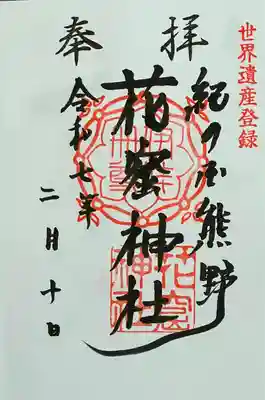 世界遺産登録
奉拝
紀の国熊野
花窟神社
令和七年
二月十日
花窟神社